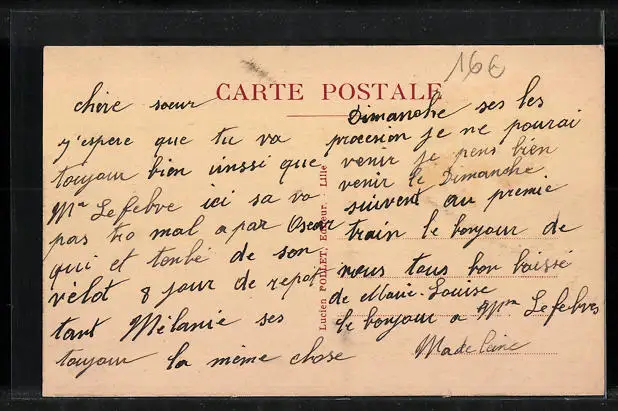 166
CARTE POSTALE
chère soeur
j'espere que tu va
toujour bien inssi que
Mme Lefebvre ici sa va
pas tro mal apar Oscar
qui et tonbé de son
vélot 8 jour de repot
tant Mélanie ses
toujour la même chose
Dimanche ses les
procesion je ne pourai
venir je pens bien
venir le Dimanche
suivent au premie
train le bonjour de
nous tous bon baissé
de Marie-Louise
le bonjour a Mme Lefebvre
Madeleine
Lucien POLLET, Editeur, Lille